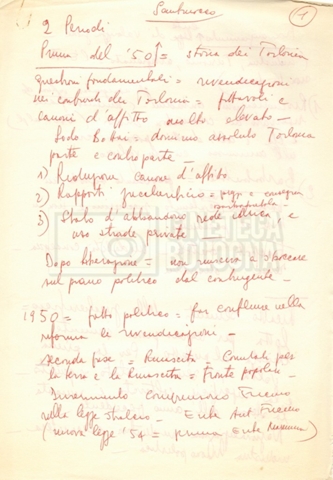 Sanbucco
1
2 Periodi
Prima del '50 = storia dei Torlonia
questioni fondamentali = rivendicazioni
nei confronti dei Torlonia = fittavoli e
canoni d'affitto molto elevato -
Lodo Bottai = dominio assoluto Torlonia
parte e controparte -
1) Riduzione canone d'affitto
2) Rapporti zuccherificio = e consegna
3) Stato d'abbandono rete idrica e
uso strade private -
CINETECA
BOLOGNA
Dopo liberazione = non riusciva a sboccare
sul piano politico del contingente -
1950 = fatto politico = far confluire nella
riforma le rivendicazioni -
seconda fase = Rinascita - Comitati per
la terra e la Rinascita = fronte popolare -
Inserimento comprensorio Fucino
nella legge stralcio - Ente Aut. Fucino
(nuova legge '54 = prima Ente Maremma)